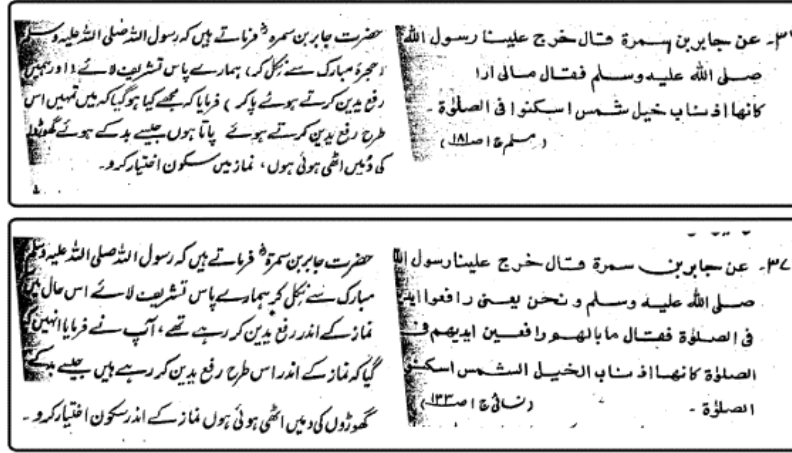 عن جابر بن سمرة قال خرج علينا رسول الله
صلى الله عليه وسلم فقال مالى ارا
كانها اذناب خيل شمس اسكنوا فى الصلوٰة -
(مسلم ج ۱ ص ۱۸۱)
حضرت جابر بن سمرہؓ فرماتے ہیں کہ رسول اللہ صلی اللہ علیہ وسلم
(حجرۂ مبارک سے نکل کر) ہمارے پاس تشریف لائے (اور ہمیں
رفع یدین کرتے ہوئے پا کر) فرمایا کہ مجھے کیا ہو گیا کہ میں تمہیں اس
طرح رفع یدین کرتے ہوئے پاتا ہوں جیسے بدکے ہوئے گھوڑوں
کی دُمیں اٹھی ہوئی ہوں، نماز میں سکون اختیار کرو۔
۳۷- عن جابر بن سمرة قال خرج علينا رسول الله
صلى الله عليه وسلم و نحن يعنى رافعوا
فى الصلوٰة فقال ما بالهم رافعين ايديهم فى
الصلوٰة كانها اذناب الخيل الشمس اسكنو
الصلوٰة -
(نسائی ج ۱ ص ۱۳۳)
حضرت جابر بن سمرۃؓ فرماتے ہیں کہ رسول اللہ صلی اللہ علیہ وسلم
مبارک سے نکل کر ہمارے پاس تشریف لائے اس حال میں
نماز کے اندر رفع یدین کر رہے تھے، آپ نے فرمایا انہیں کیا
گیا کہ نماز کے اندر اس طرح رفع یدین کر رہے ہیں جیسے بدکے
گھوڑوں کی دمیں اٹھی ہوئی ہوں نماز کے اندر سکون اختیار کرو۔